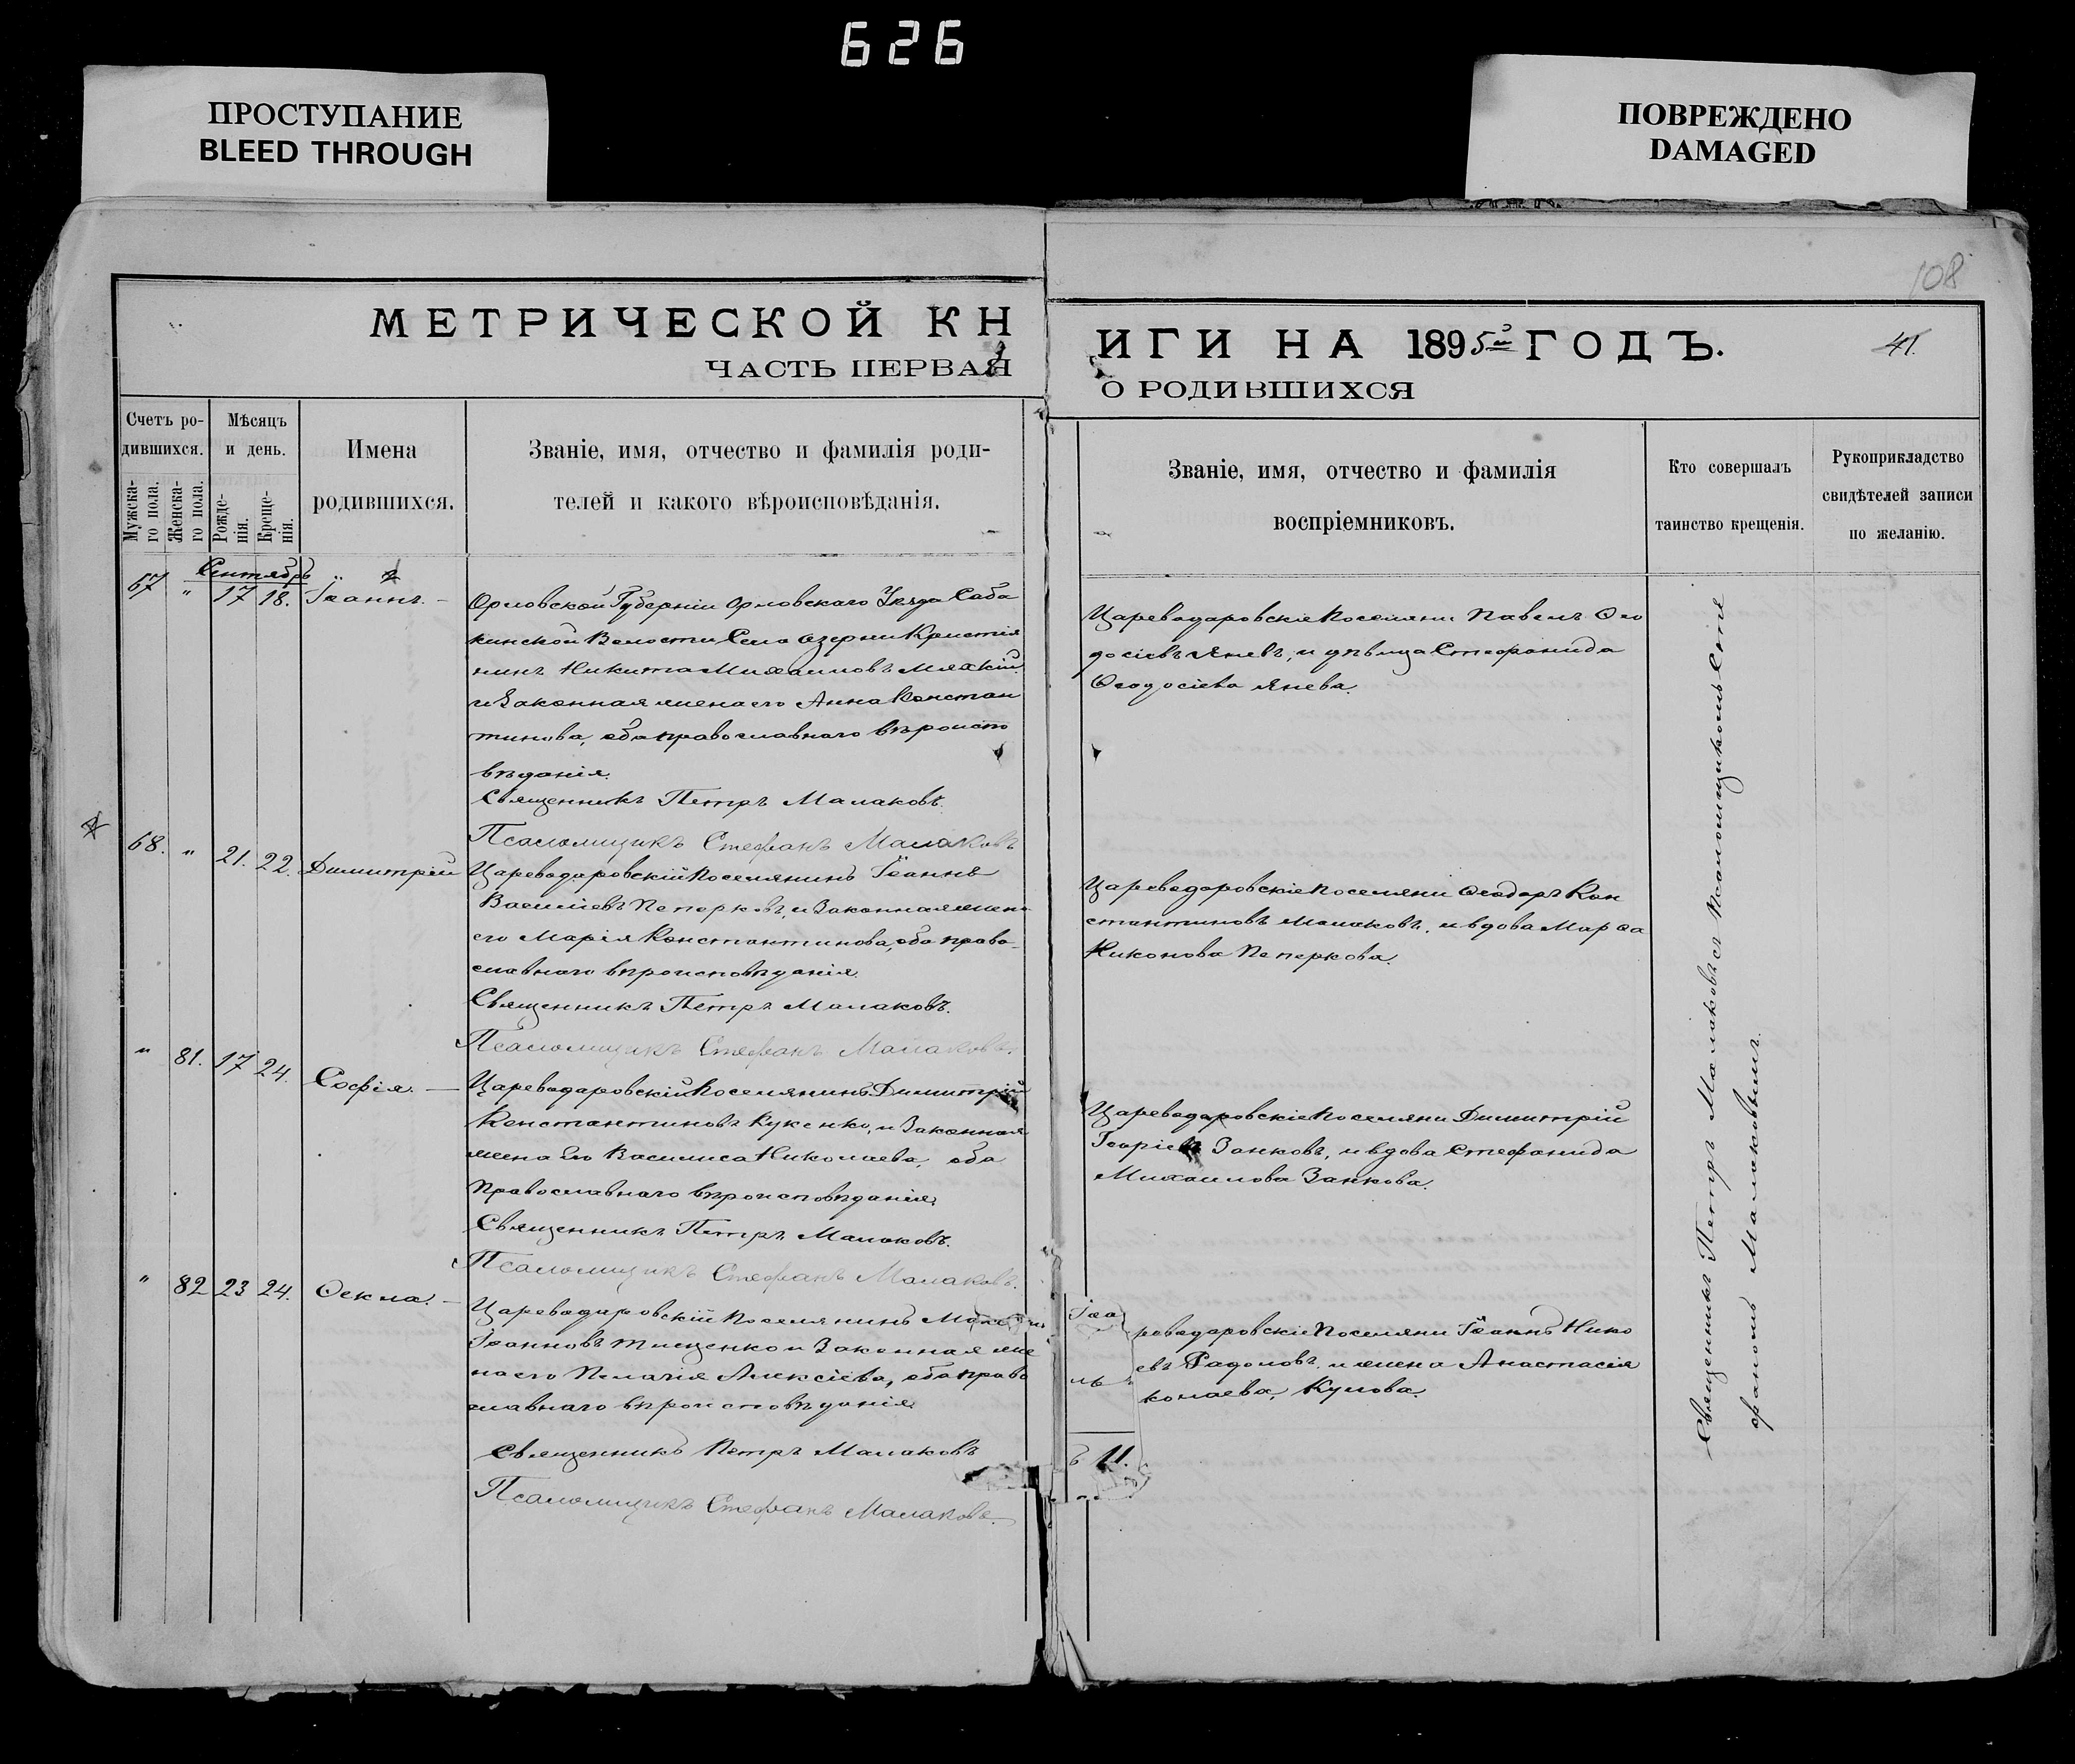 626
ПРОСТУПАНИЕ
BLEED THROUGH
ПОВРЕЖДЕНО
DAMAGED
108
МЕТРИЧЕСКОЙ КН
ЧАСТЬ ПЕРВАЯ
ИГИ НА 1895й ГОДЪ.
41.
О РОДИВШИХСЯ
Счетъ ро-
дившихся.
Мужска-
го пола.
Женска-
го пола.
Мѣсяцъ
и день.
Рожде-
нія.
Креще-
нія.
Имена
родившихся.
Званіе, имя, отчество и фамилія роди-
телей и какого вѣроисповѣданія.
Званіе, имя, отчество и фамилія
воспріемниковъ.
Кто совершалъ
таинство крещенія.
Рукоприкладство
свидѣтелей записи
по желанію.
Сентябрь
67 " 17 18. Іоаннъ. —
Орловской Губерніи Орловскаго Уѣзда Саба
кинской Волости Села Озерки Крестья
нинъ Никита Михаиловъ Мяхкій
и Законная жена его Анна Констан
тинова, оба православнаго вѣроиспо
вѣданія.
Священникъ Петръ Малаковъ.
Псаломщикъ Стефанъ Малаковъ
Цареводаровскіе Поселяни Павелъ Ѳео
досіевъ Яневъ, и дѣвица Стефанида
Ѳеодосіева Янева.
68. " 21. 22. Димитрій
Цареводаровскій Поселянинъ Іоаннъ
Василіевъ Пеперковъ, и Законная жена
его Марія Константинова, оба право-
славнаго вѣроисповѣданія.
Священникъ Петръ Малаковъ.
Псаломщикъ Стефанъ Малаковъ.
Цареводаровскіе Поселяни Ѳеодоръ Кон
стантиновъ Малаковъ, и вдова Марѳа
Никонова Пеперкова.
" 81. 17 24. Софія. —
Цареводаровскій Поселянинъ Димитрій
Константиновъ Кукенко, и Законная
жена Его Василиса Николаева, оба
Православнаго вѣроисповѣданія.
Священникъ Петръ Малаковъ.
Псаломщикъ Стефанъ Малаковъ.
Цареводаровскіе Поселяни Димитрій
Занковъ, и вдова Стефанида
Михаилова Занкова.
" 82 23 24. Ѳекла. —
Цареводаровскій Поселянинъ
Іоанновъ Тищенко и Законная же
на его Пелагія Алексіева, оба право
славнаго вѣроисповѣданія.
Священникъ Петръ Малаковъ
Псаломщикъ Стефанъ Малаковъ.
реводаровскіе Поселяни Іоаннъ Нико
евъ Радоловъ, и жена Анастасія
колаева, Кулова.
11.
Священникъ Петръ Малаковъ съ Псаломщикомъ Сте
фаномъ Малаковымъ.